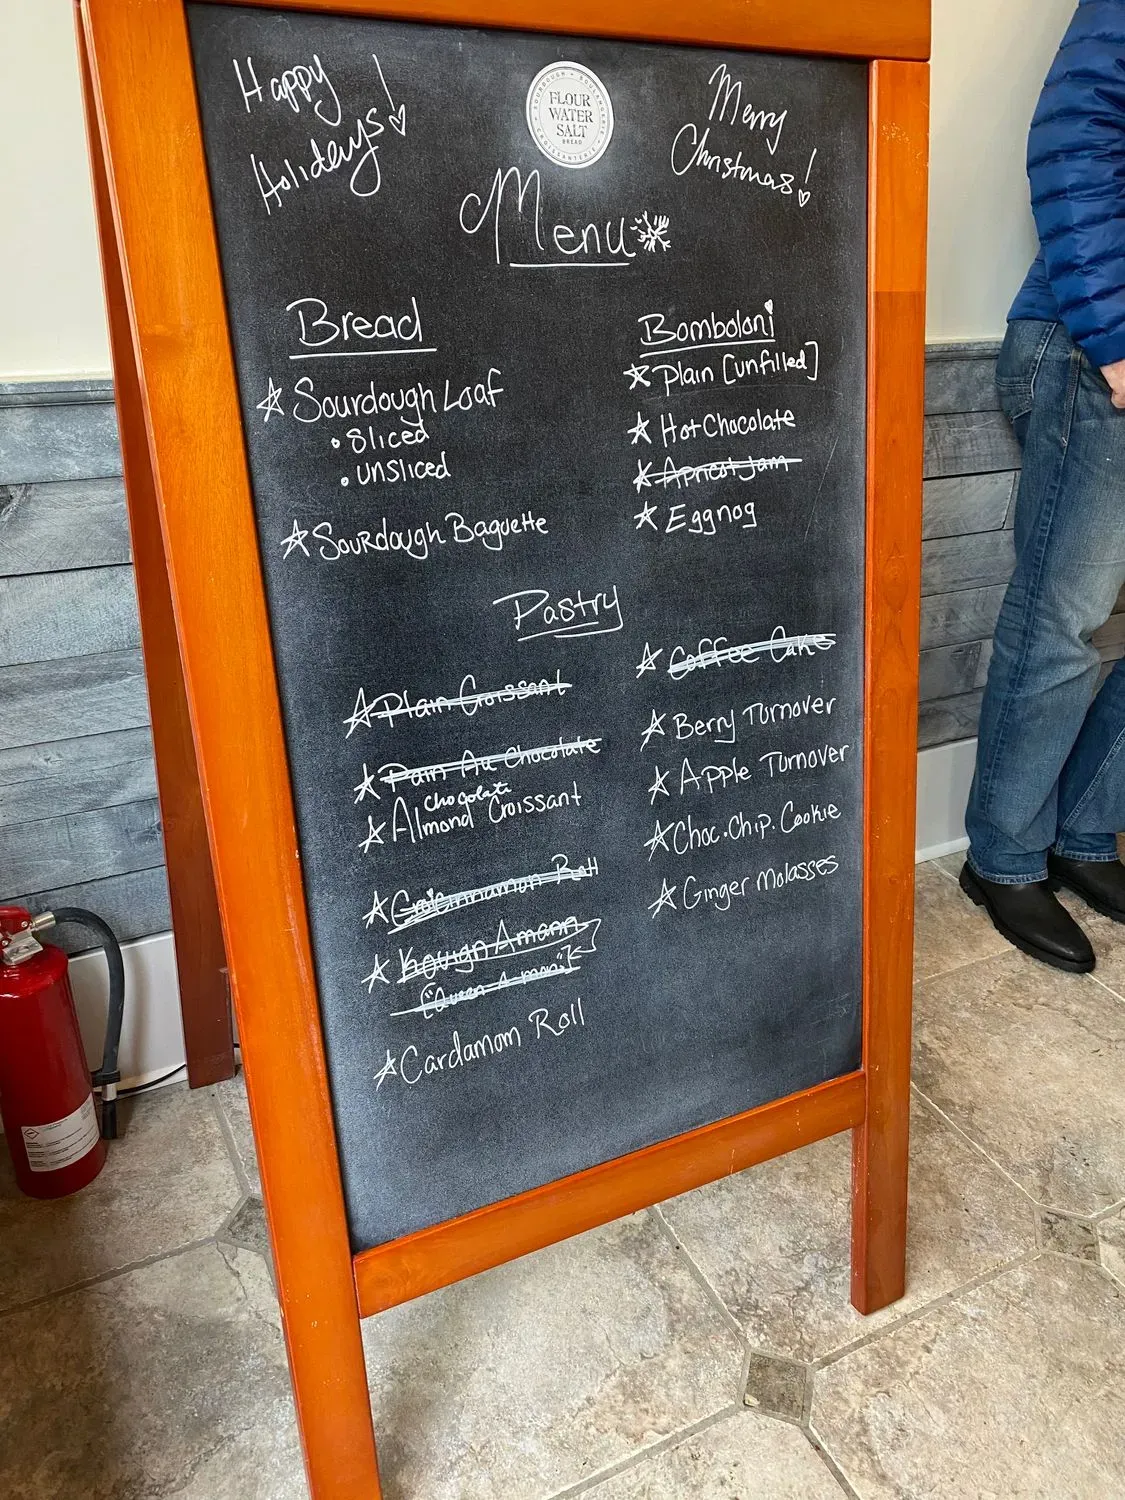 Happy
Holidays!
SOURDOUGH • BOULANGERIE
FLOUR
WATER
SALT
BREAD
CROISSANTERIE
Merry
Christmas!
Menu
Bread
Sourdough Loaf
• Sliced
• unsliced
Sourdough Baguette
Bomboloni
Plain [unfilled]
Hot Chocolate
Apricot Jam
Eggnog
Pastry
Plain Croissant
Pain Au Chocolate
chocolate
Almond Croissant
Cinnamon Roll
Kouign Amann
["Queen A-man"]
Cardamom Roll
Coffee Cake
Berry Turnover
Apple Turnover
Choc. Chip. Cookie
Ginger Molasses